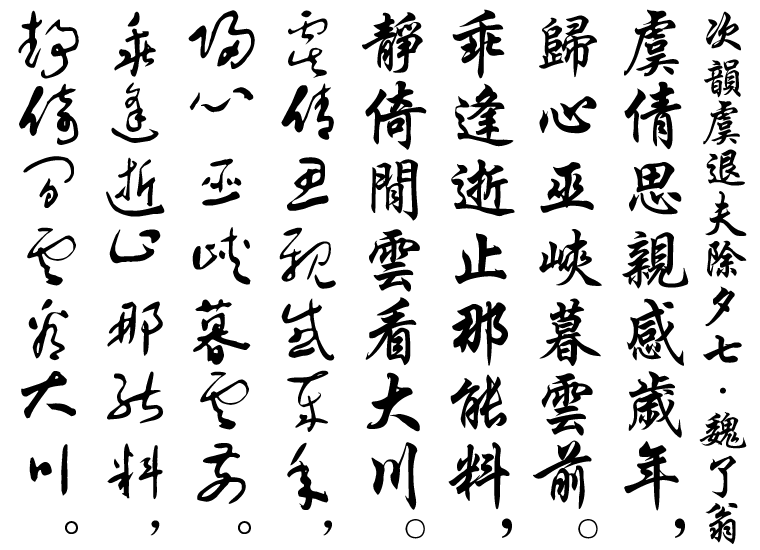 次韻虞退夫除夕七·魏了翁
虞倩思親感歲年，
歸心巫峽暮雲前。
乖逢逝止那能料，
靜倚閒雲看大川。
虞倩思親感歲年，
歸心巫峽暮雲前。
乖逢逝止那能料，
靜倚閒雲看大川。